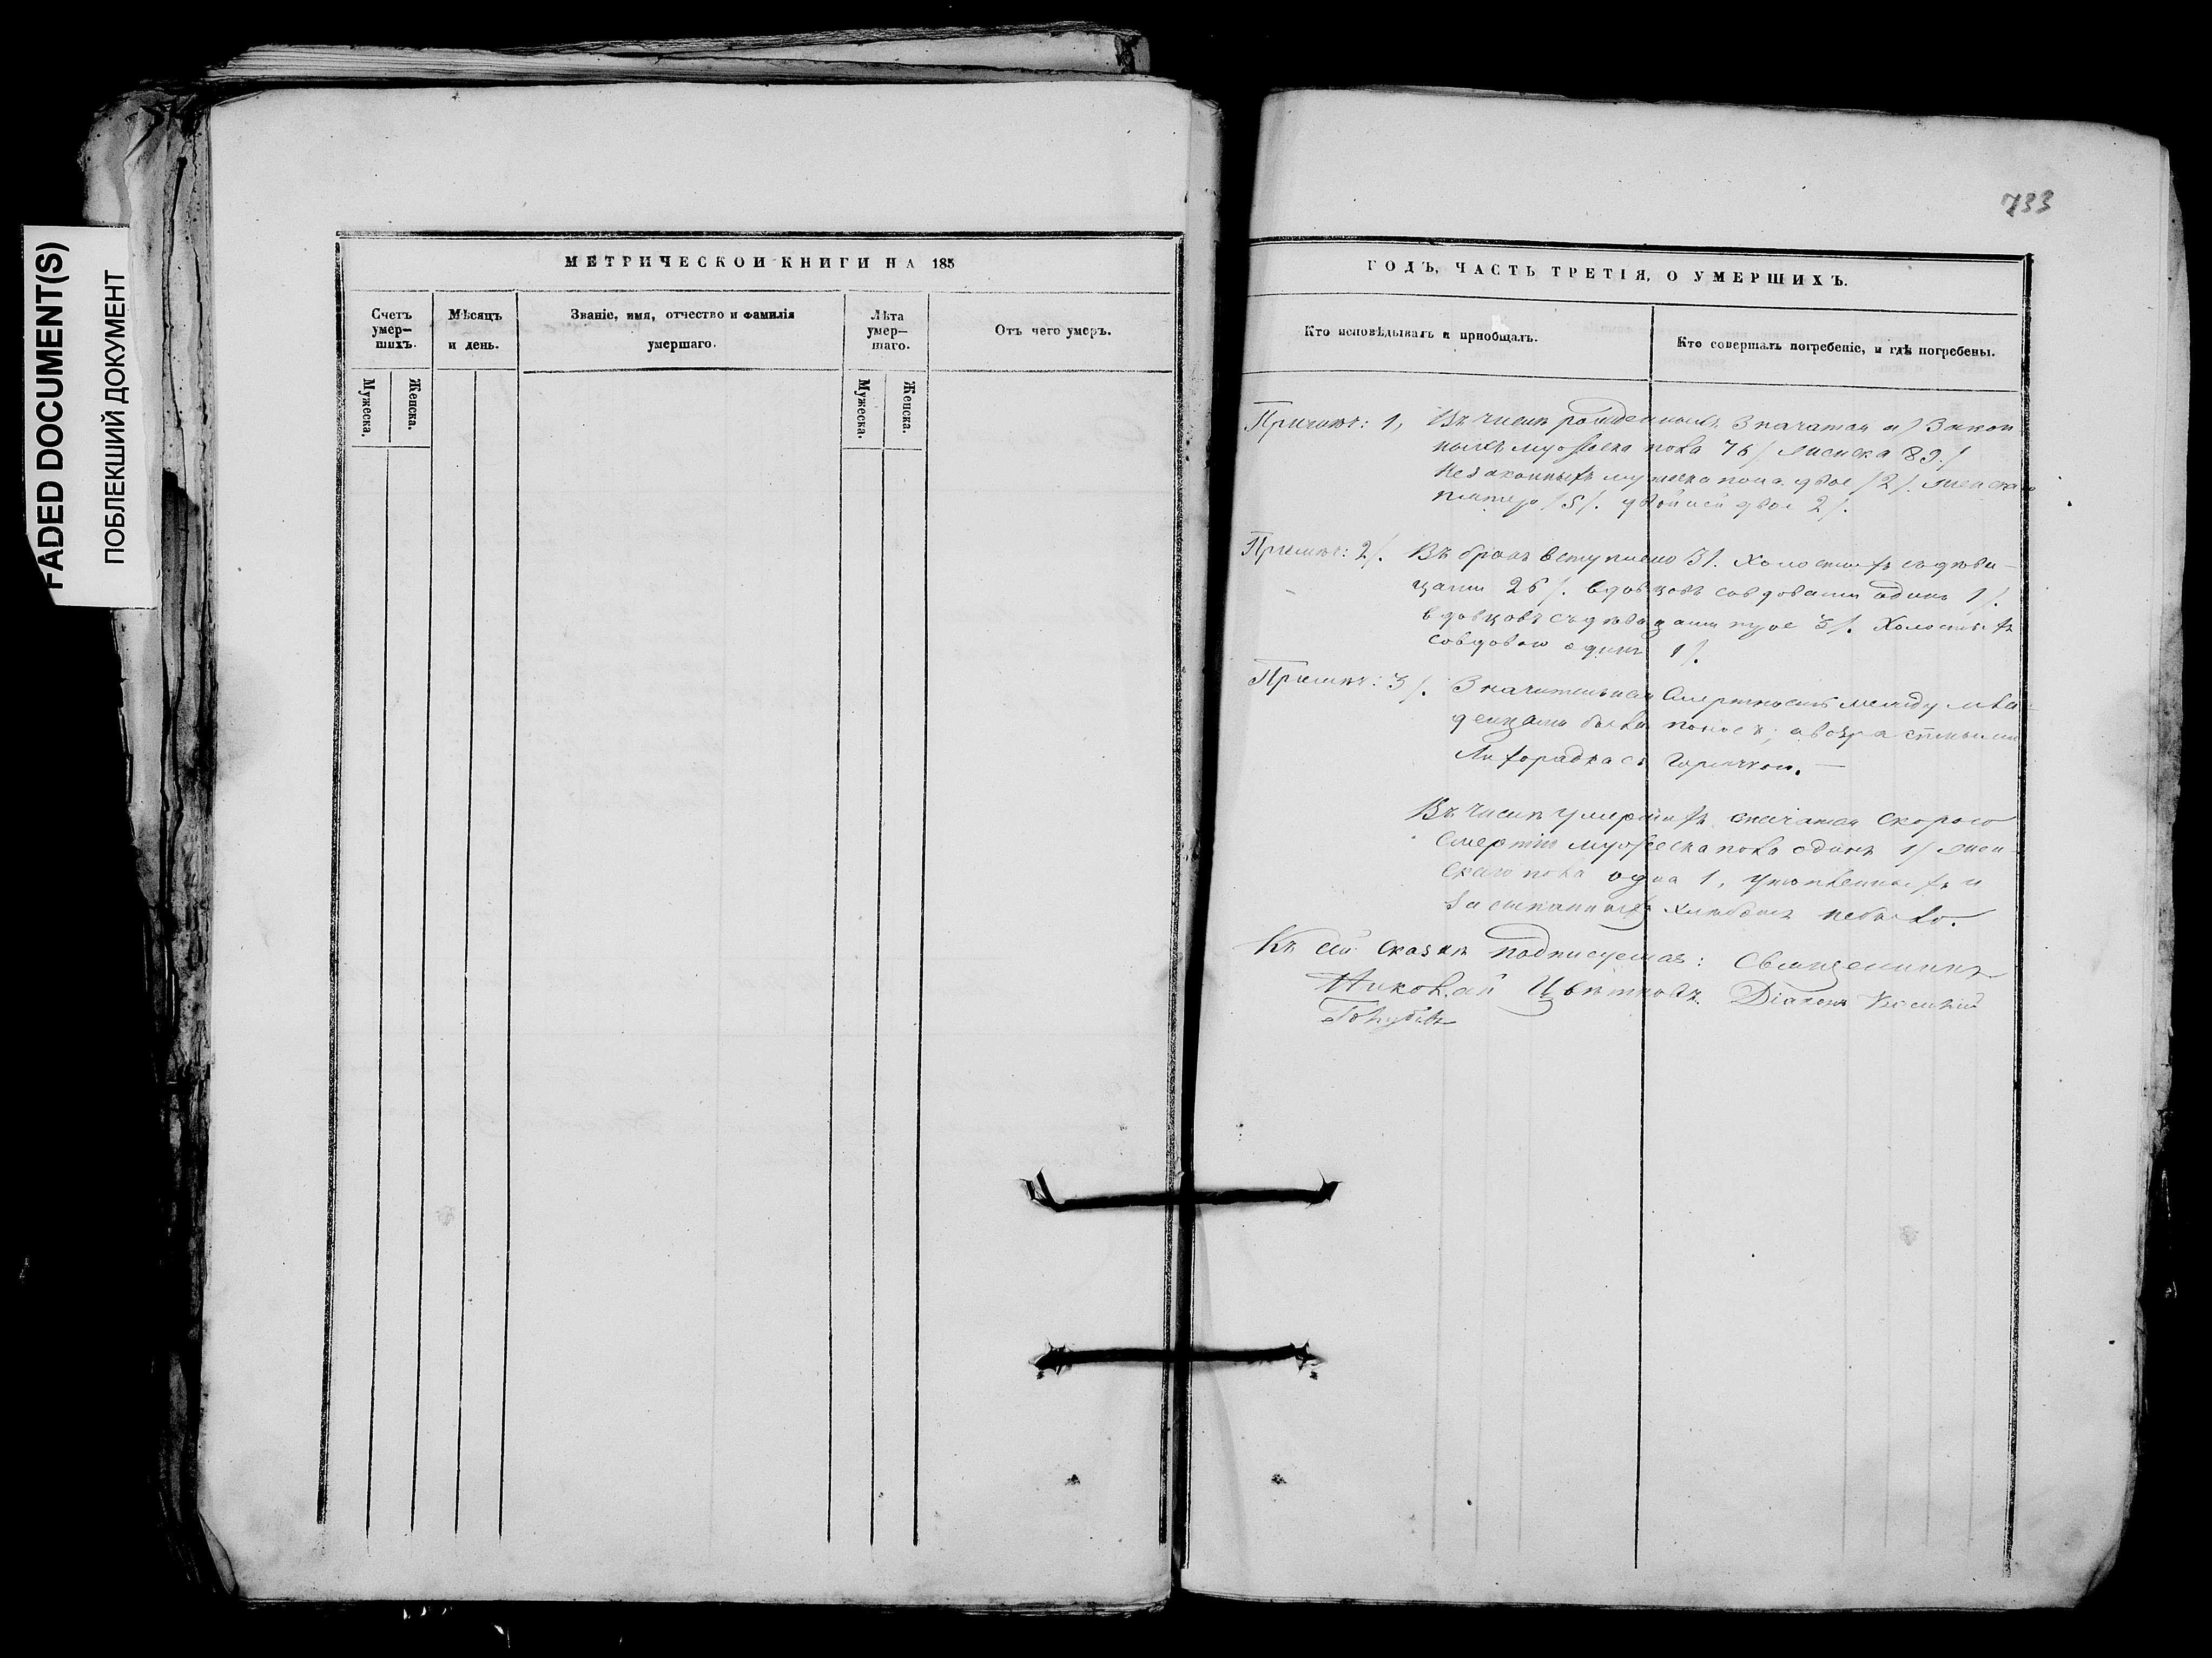 FADED DOCUMENT(S)
ПОБЛЕКШИЙ ДОКУМЕНТ
МЕТРИЧЕСКОИ КНИГИ НА 185
Счетъ умер—шихъ.
Мѣсяцъ и день.
Званіе, имя, отчество и фамилія умершаго.
Лѣта умер—шаго.
Отъ чего умеръ.
Мужеска.
Женска.
Мужеска.
Женска.
733
ГОДЪ, ЧАСТЬ ТРЕТІЯ, О УМЕРШИХЪ.
Кто исповѣдывалъ и пріобщалъ.
Кто совершалъ погребеніе, и гдѣ погребены.
Примѣч: 1, Въ числѣ рожденныхъ Значатся а) Закон
ныхъ мужеска пола 76/ женска 89./
Незаконныхъ мужеска пола двое /2/. женска
пятеро /5/. двойней двое 2/.
Примѣч: 2/. Въ бракъ вступило 31. Холостыхъ съ дѣви-
цами 26/. вдовцовъ со вдовами одинъ 1/.
вдовцовъ съ дѣвицами трое 3/. Холостыхъ
со вдовою одинъ 1/.
Примѣч: 3/. Значительная Смертность между мла-
денцами была поносъ; а возрастными
Лихорадка съ Горячкою.—
Въ числѣ умершихъ значатся скорою
смертію мужеска пола одинъ 1/ жен-
скаго пола одна 1, утопленныхъ и
засыпанныхъ хлѣбомъ небыло.
Къ сей сказкѣ подписуемся: Священникъ
Николай Цвѣтковъ. Діаконъ Василій
Голубевъ